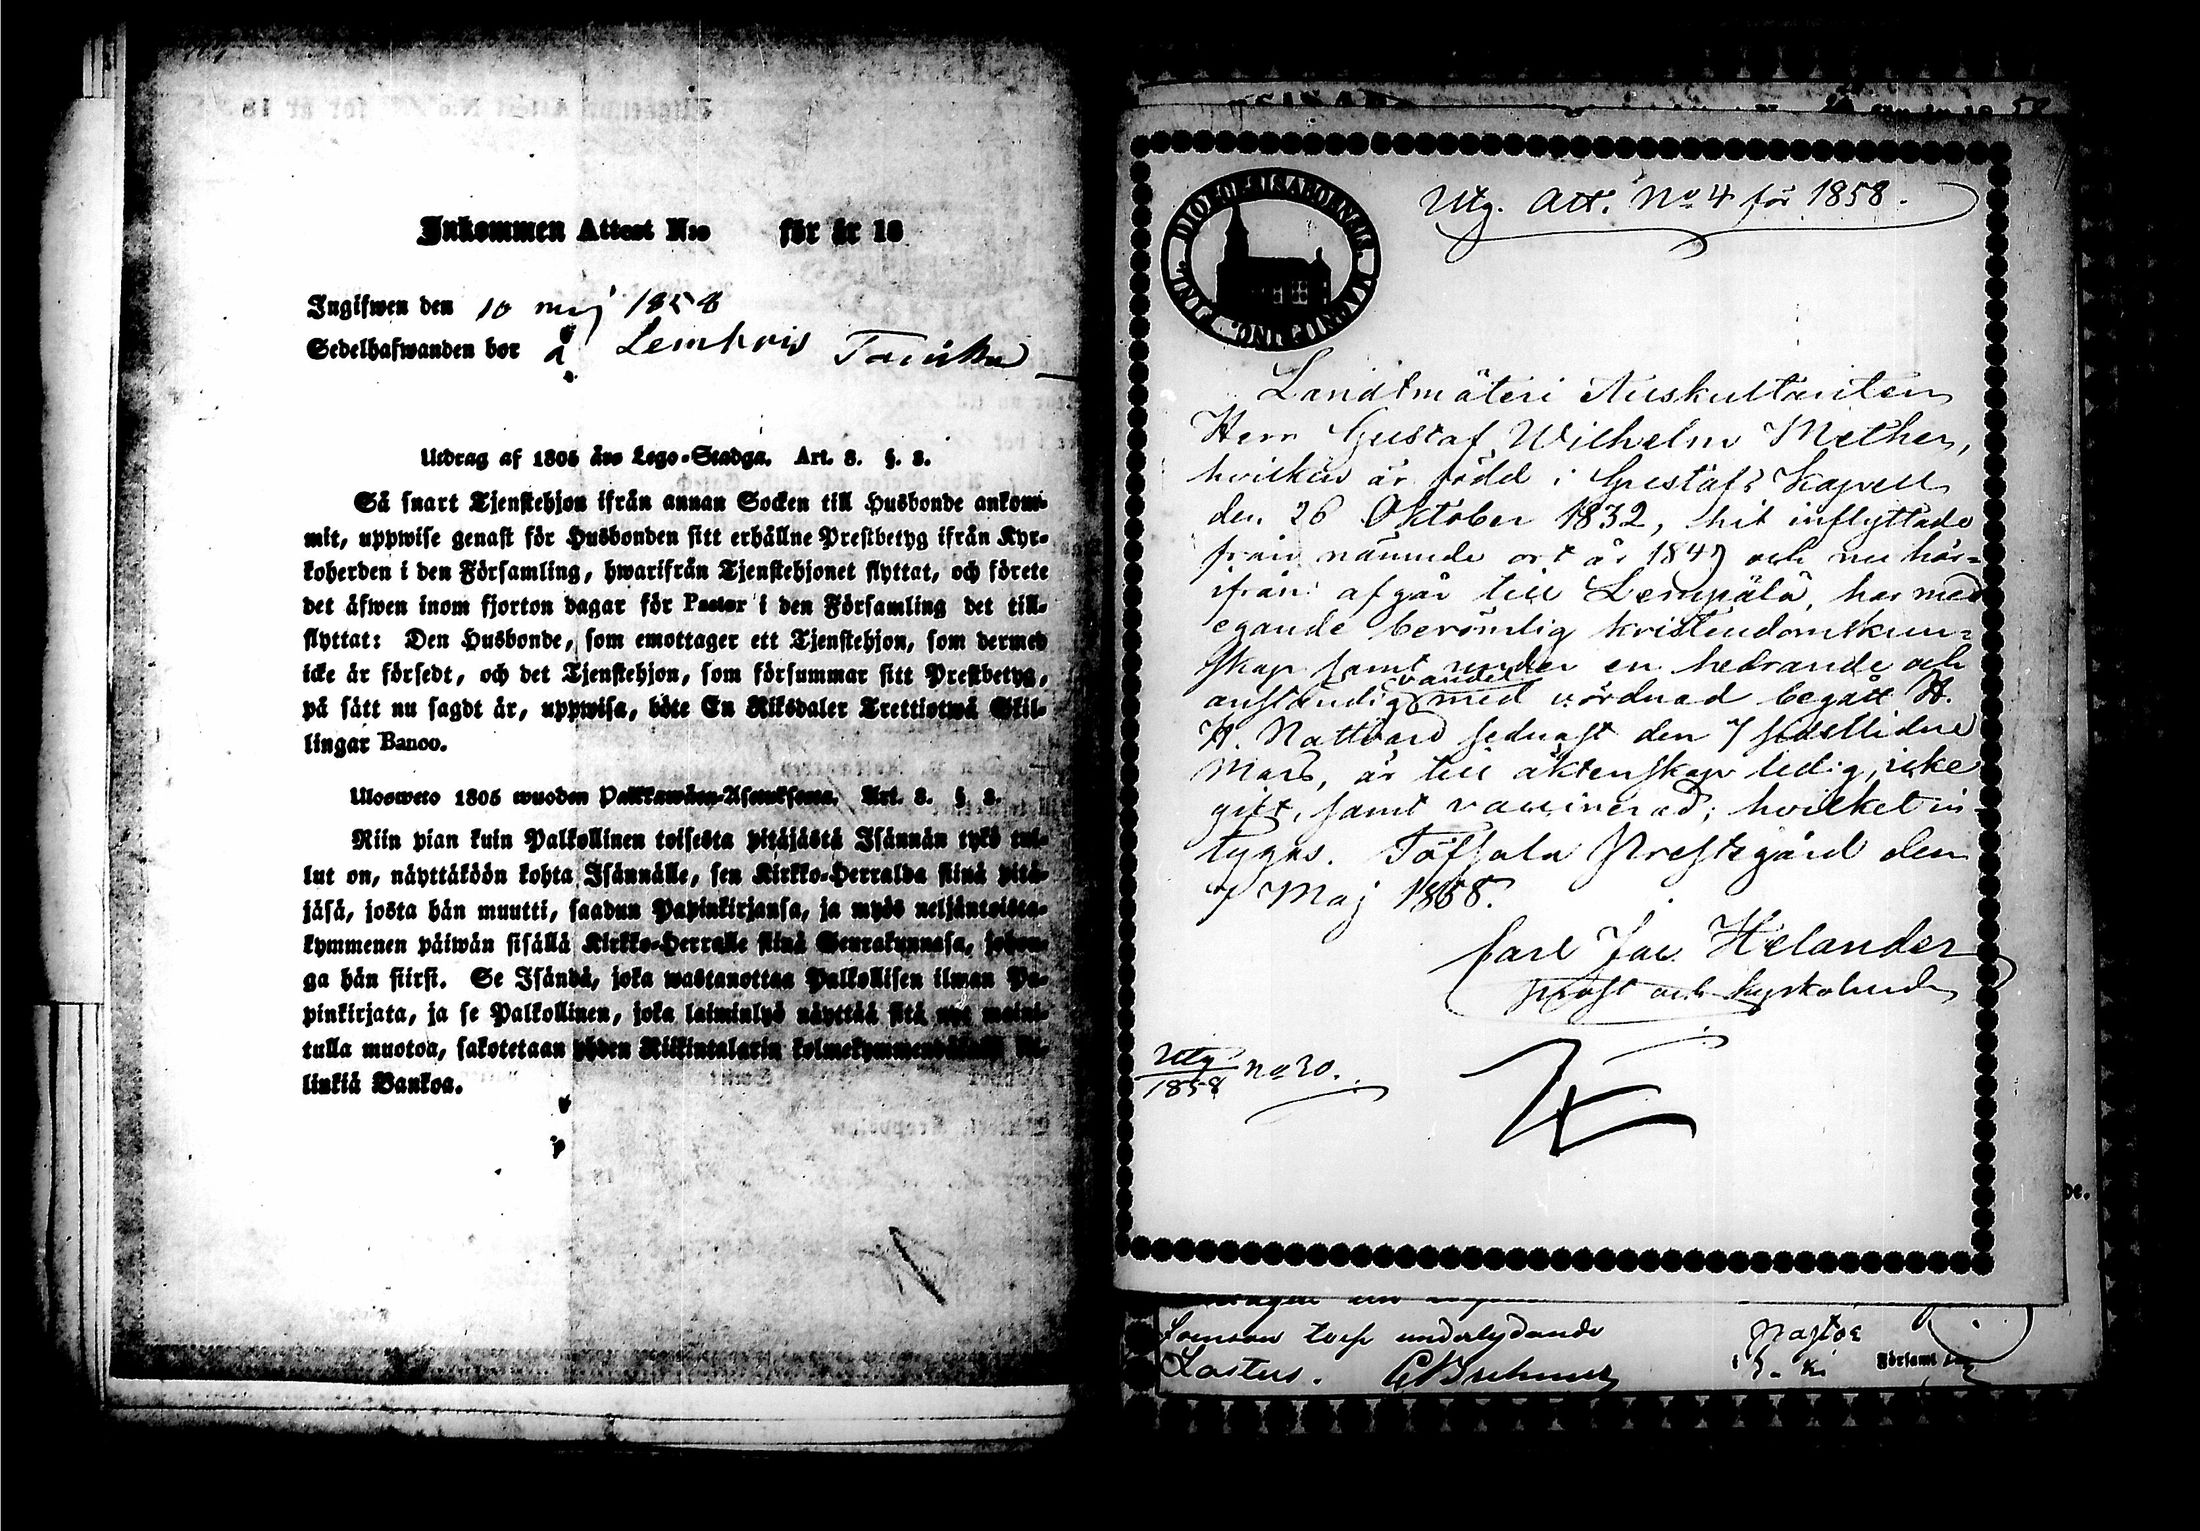 Inkommen Attest N:o för år 18
Ingifwen den 10 maj 1858
Sedelhafwanden bor å Lembois
Utdrag af 1805 års Lego-Stadga. Art. 8. §. 3.
Så snart Tjenstehjon ifrån annan Socken till Husbonde ankom-
mit, uppwise genast för Husbonden sitt erhållne Prestbetyg ifrån Kyr-
koherden i den Församling, hwarifrån Tjenstehjonet flyttat, och förete
det äfwen inom fjorton dagar för Pastor i den Församling det till-
flyttat: Den Husbonde, som emottager ett Tjenstehjon, som dermed
icke är försedt, och det Tjenstehjon, som försummar sitt Prestbetyg,
på sätt nu sagdt är, uppwisa, böte En Riksdaler Trettiotwå Skil-
lingar Banco.
Ulosweto 1805 wuoden Palkkawäen-Asetuksesta. Art. 8. § 3.
Niin pian kuin Palkollinen toisesta pitäjästä Isännän tykö tul-
lut on, näyttäköön kohta Isännälle, sen Kirkko-Herralda siinä pitä-
jäsä, josta hän muutti, saadun Papinkirjansa, ja myös neljäntoista-
kymmenen päiwän sisällä Kirkko-Herralle siinä Seurakunnasa, johon-
ga hän siirsi. Se Isändä, joka wastanottaa Palkollisen ilman Pa-
pinkirjata, ja se Palkollinen, joka laiminlyö näyttää sitä nyt maini-
tulla muotoa, sakotetaan yhden Riikintalarin kolmekymmendäkaksi kil-
linkiä Bankoa.
Utg. Att. No 4 för 1858.
Landtmäteri Auskultanten
Herr Gustaf Wilhelm Mether,
hvilken är född i Gustafs Kapell
den 26 Oktober 1832, hit inflyttade
från nämnde ort år 1847 och nu här-
ifrån afgår till Lempälä, har med
egande berömlig kristendomskun-
skap samt under en hedrande och
anständig vandel med vördnad begått H.
H. Nattvard sednast den 7 sistlidne
Mars, är till äktenskap ledig, icke
gift, samt vaccinerad; hvilket in-
tygas. Töfsala Prestgård den
7 Maj 1858.
Carl Jac. Helander
Prost och Kyrkoherde
Utg 1858 No 20.
torp underlydande
Pastor
Lastus.
i
Församl